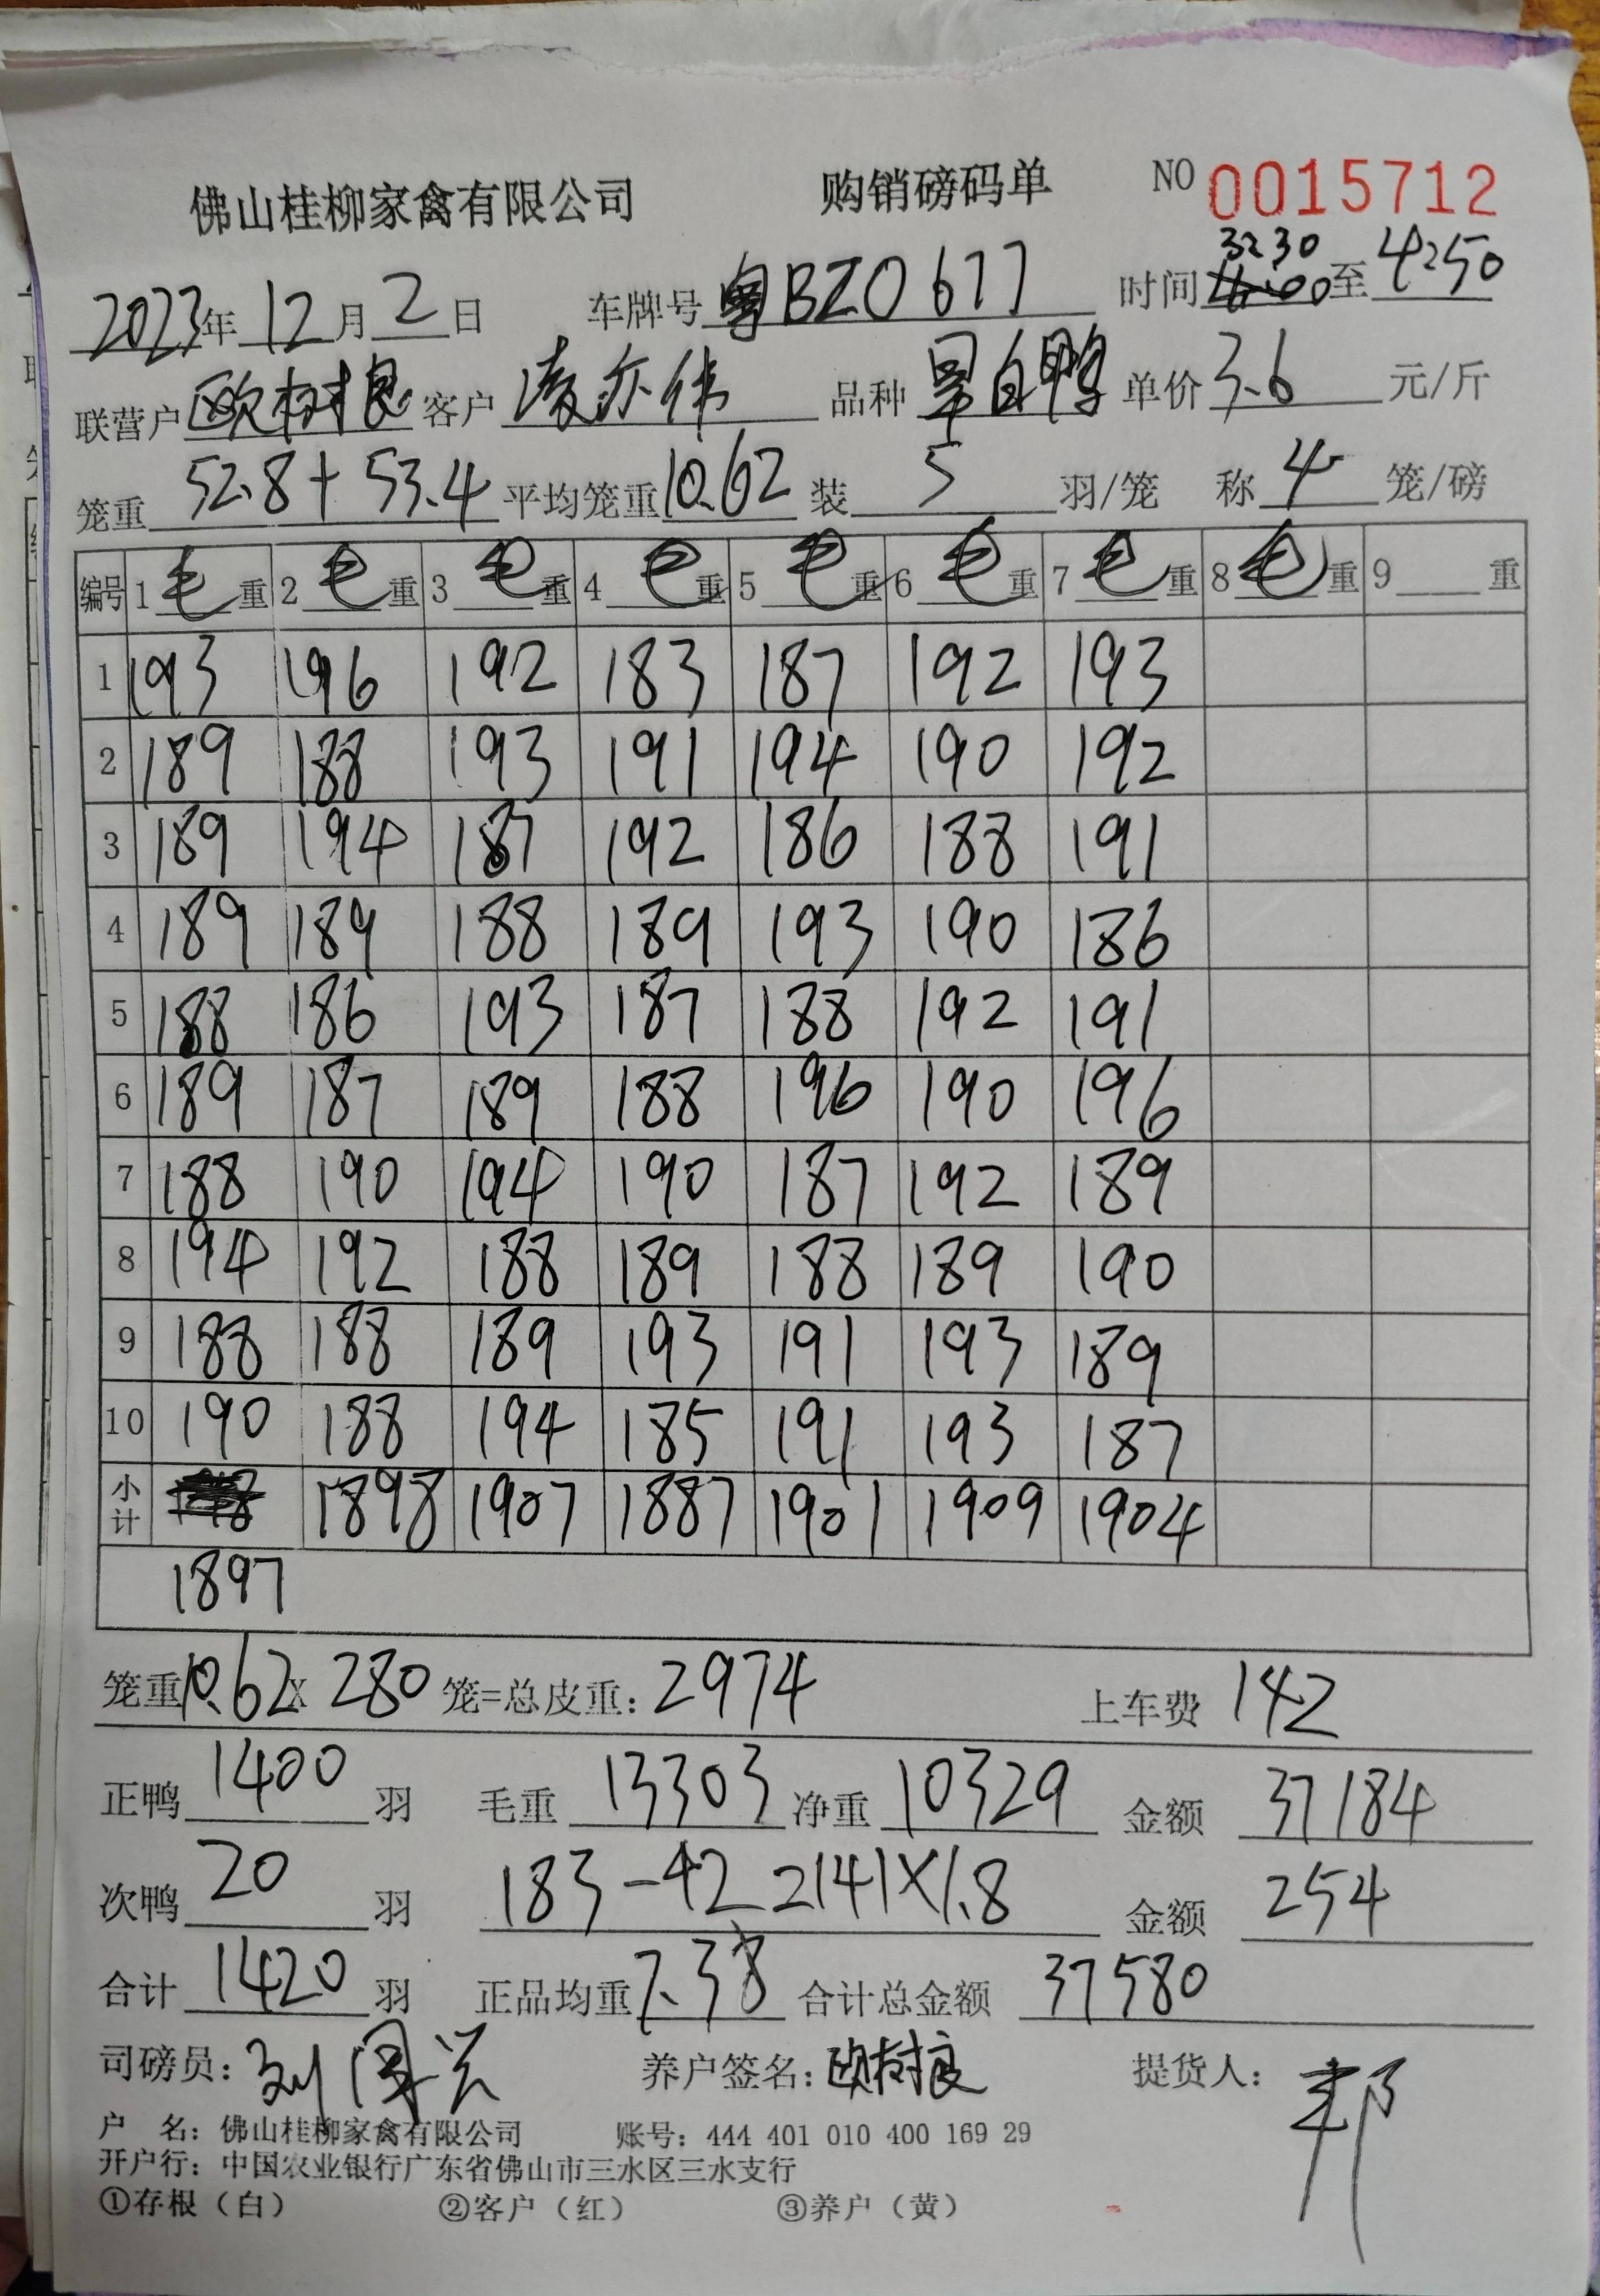 佛山桂柳家禽有限公司 购销磅码单 NO 0015712
2023年 12月 2日 车牌号 粤BZ0677 时间 3:30 至 4:50
联营户 欧树良 客户 凌亦伟 品种 白鸭 单价 3.6 元/斤
笼重 52.8+53.4 平均笼重 10.62 装 5 羽/笼 称 4 笼/磅
编号 1 毛重 2 毛重 3 毛重 4 毛重 5 毛重 6 毛重 7 毛重 8 毛重 9 重
1 193 196 192 183 187 192 193
2 189 188 193 191 194 190 192
3 189 194 187 192 186 188 191
4 189 189 188 189 193 190 186
5 188 186 193 187 188 192 191
6 189 187 189 188 196 190 196
7 188 190 194 190 187 192 189
8 194 192 188 189 188 189 190
9 188 188 189 193 191 193 189
10 190 188 194 185 191 193 187
小计 1898 1907 1887 1901 1909 1904
1897
笼重 10.62 X 280 笼=总皮重: 2974 上车费 142
正鸭 1400 羽 毛重 13303 净重 10329 金额 37184
次鸭 20 羽 183-42=141×1.8 金额 254
合计 1420 羽 正品均重 7.38 合计总金额 37580
司磅员: 刘国兴 养户签名: 欧树良 提货人:
户 名: 佛山桂柳家禽有限公司 账号: 444 401 010 400 169 29
开户行: 中国农业银行广东省佛山市三水区三水支行
①存根（白） ②客户（红） ③养户（黄）